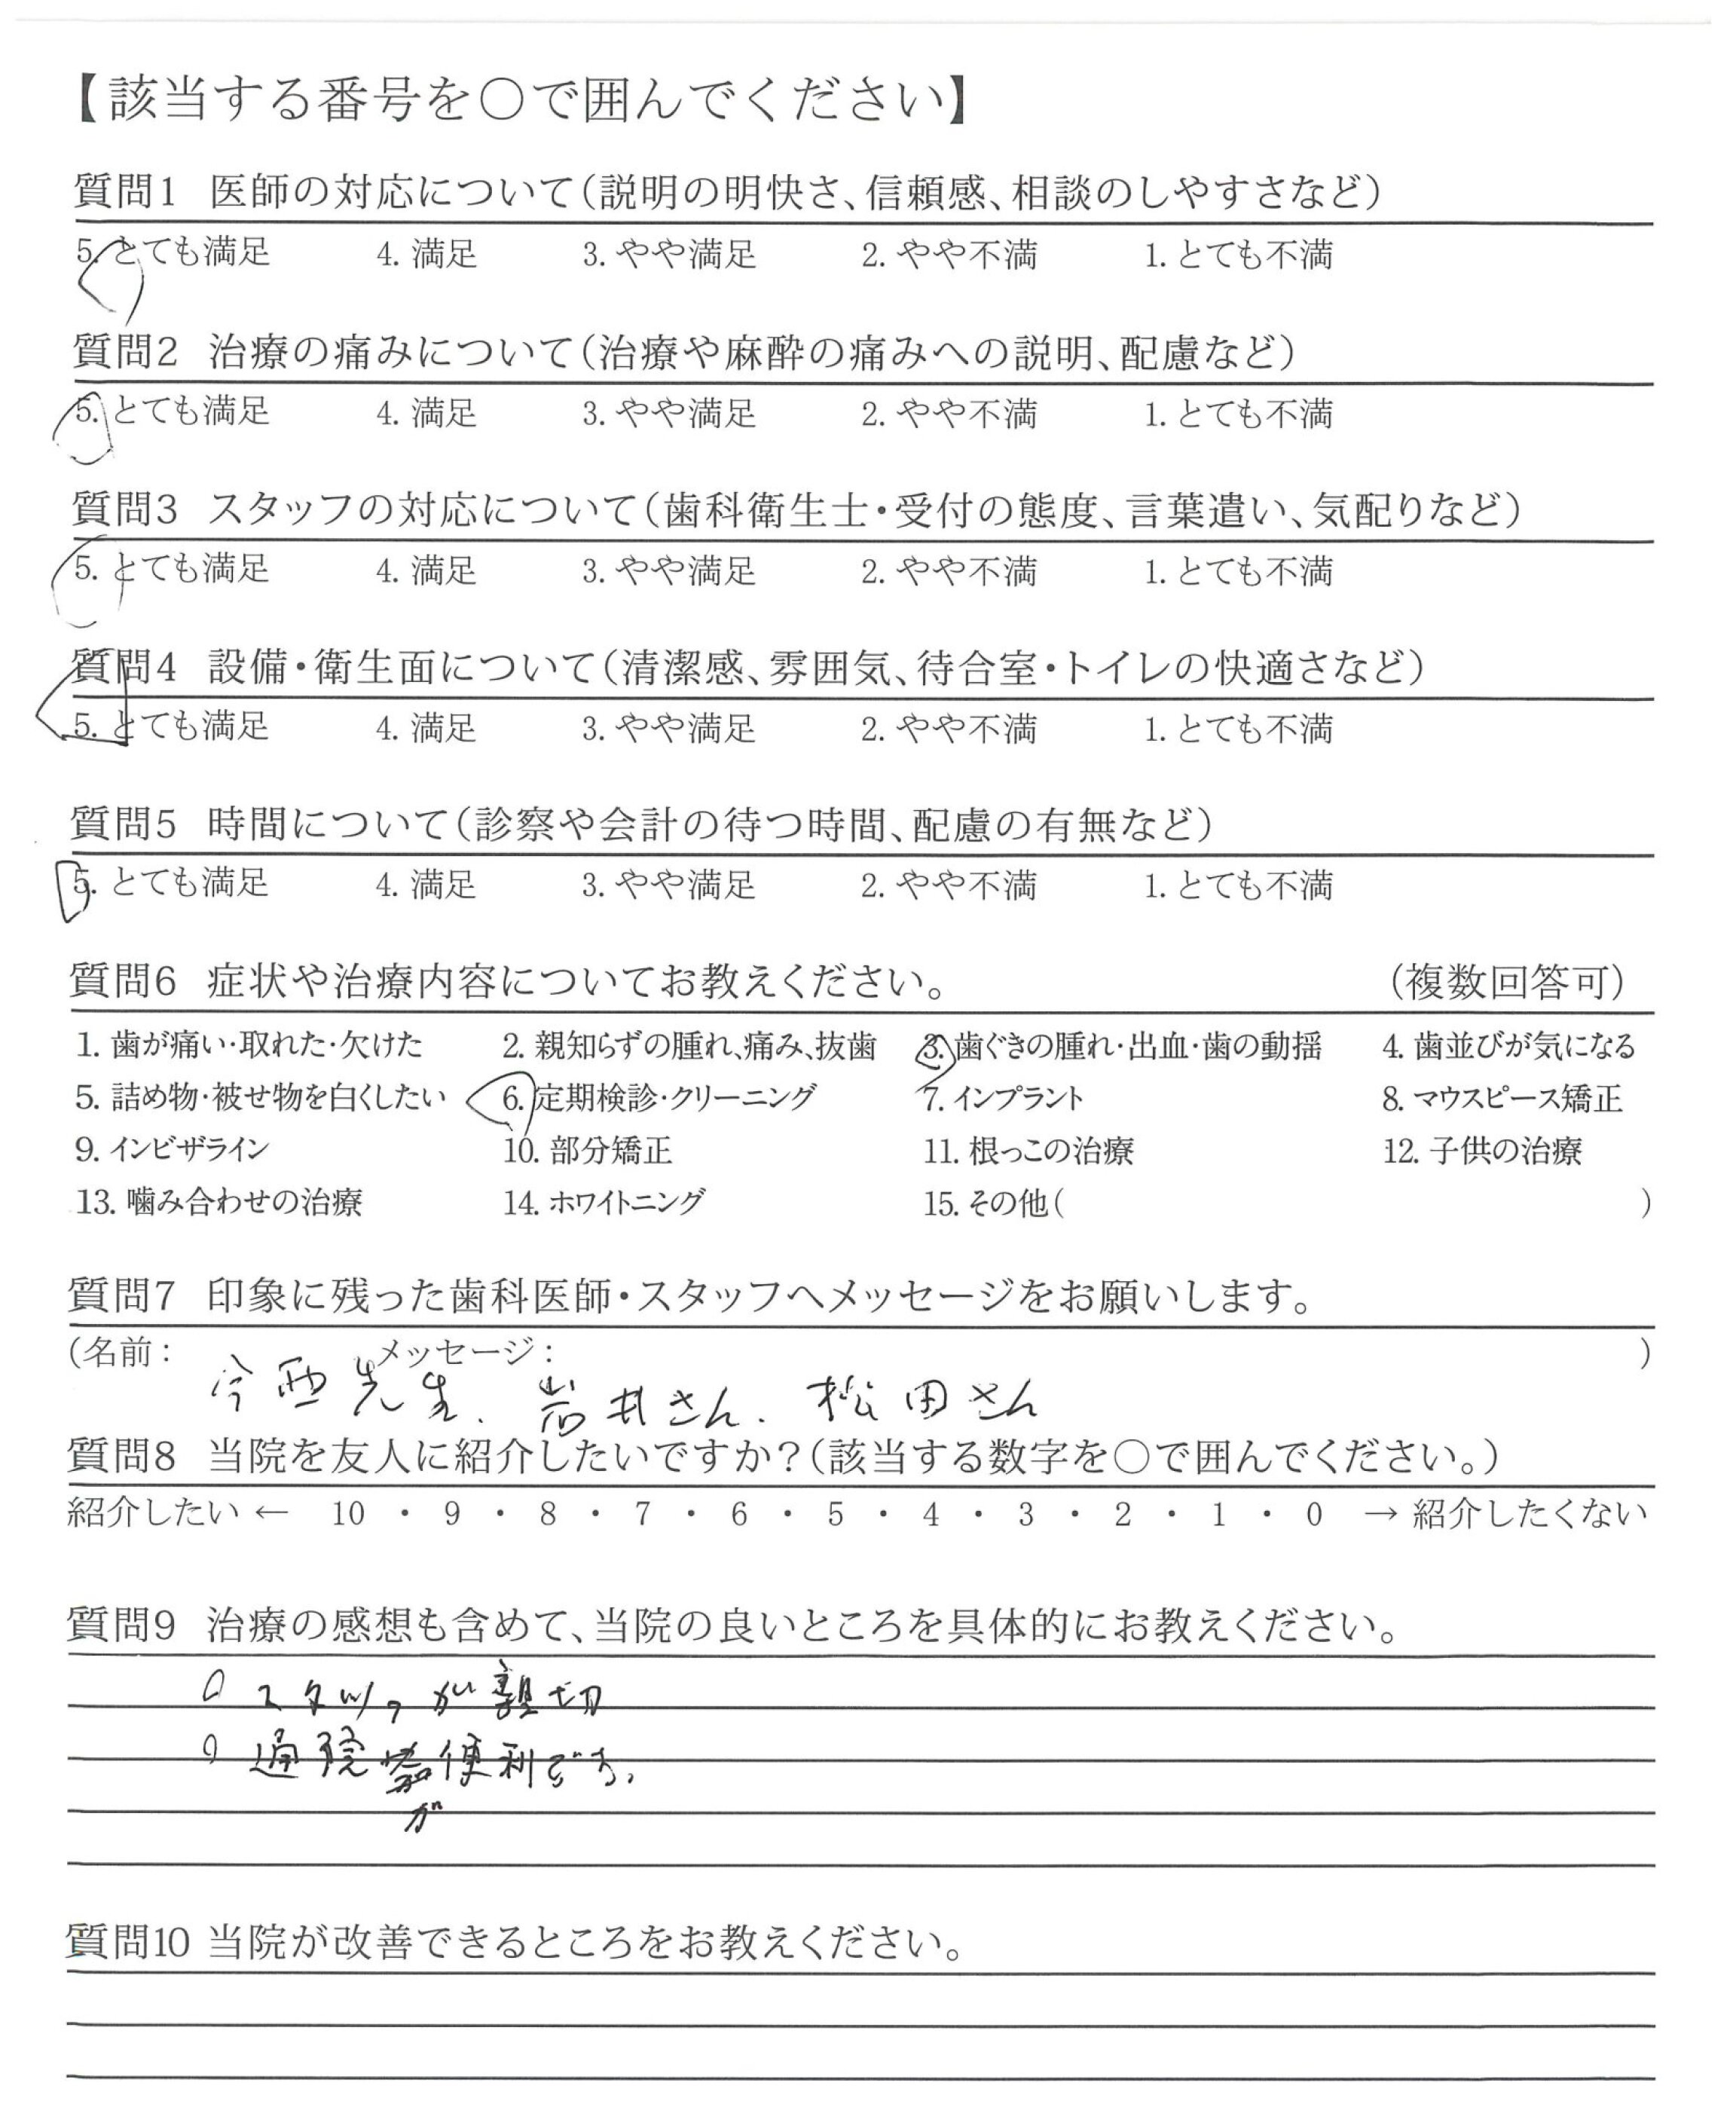 【該当する番号を○で囲んでください】
質問1 医師の対応について(説明の明快さ、信頼感、相談のしやすさなど)
5. とても満足 4. 満足 3. やや満足 2. やや不満 1. とても不満
質問2 治療の痛みについて(治療や麻酔の痛みへの説明、配慮など)
5. とても満足 4. 満足 3. やや満足 2. やや不満 1. とても不満
質問3 スタッフの対応について(歯科衛生士・受付の態度、言葉遣い、気配りなど)
5. とても満足 4. 満足 3. やや満足 2. やや不満 1. とても不満
質問4 設備・衛生面について(清潔感、雰囲気、待合室・トイレの快適さなど)
5. とても満足 4. 満足 3. やや満足 2. やや不満 1. とても不満
質問5 時間について(診察や会計の待つ時間、配慮の有無など)
5. とても満足 4. 満足 3. やや満足 2. やや不満 1. とても不満
質問6 症状や治療内容についてお教えください。 (複数回答可)
1. 歯が痛い・取れた・欠けた 2. 親知らずの腫れ、痛み、抜歯 3. 歯ぐきの腫れ・出血・歯の動揺 4. 歯並びが気になる
5. 詰め物・被せ物を白くしたい 6. 定期検診・クリーニング 7. インプラント 8. マウスピース矯正
9. インビザライン 10. 部分矯正 11. 根っこの治療 12. 子供の治療
13. 噛み合わせの治療 14. ホワイトニング 15. その他( )
質問7 印象に残った歯科医師・スタッフへメッセージをお願いします。
(名前: メッセージ: )
今西先生、岩井さん、松田さん
質問8 当院を友人に紹介したいですか?(該当する数字を○で囲んでください。)
紹介したい ← 10 ・ 9 ・ 8 ・ 7 ・ 6 ・ 5 ・ 4 ・ 3 ・ 2 ・ 1 ・ 0 → 紹介したくない
質問9 治療の感想も含めて、当院の良いところを具体的にお教えください。
○ スタッフが親切
○ 通院 便利です。
が
質問10 当院が改善できるところをお教えください。